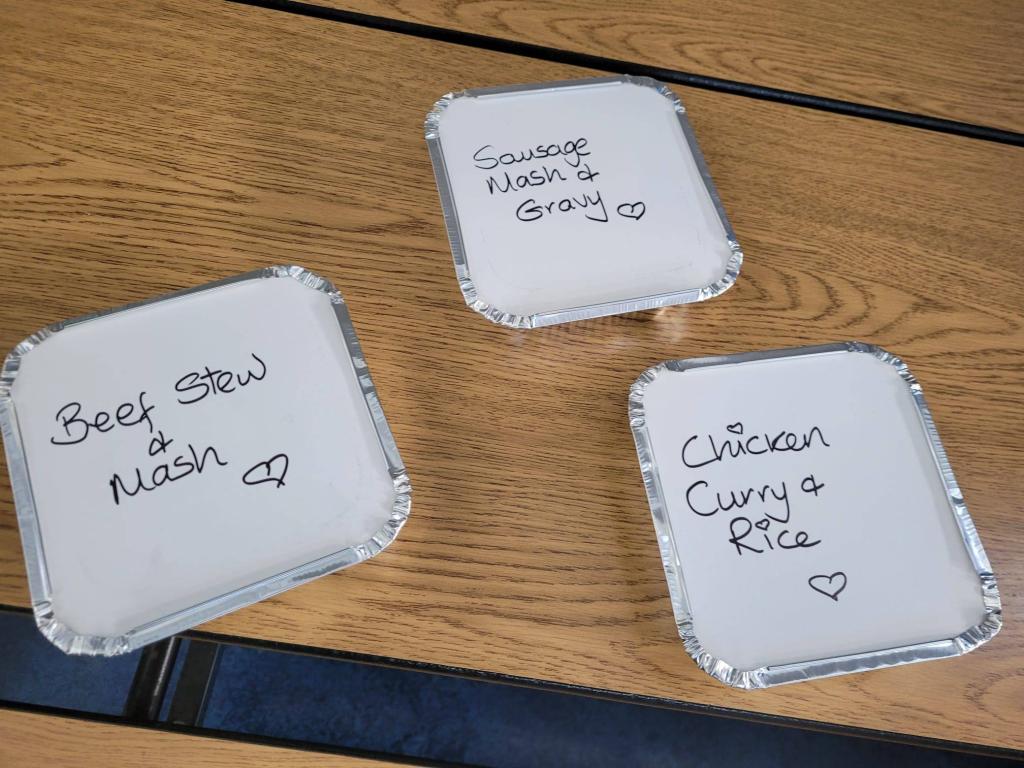 Sausage
Mash &
Gravy
Beef Stew
&
Mash
Chicken
Curry &
Rice